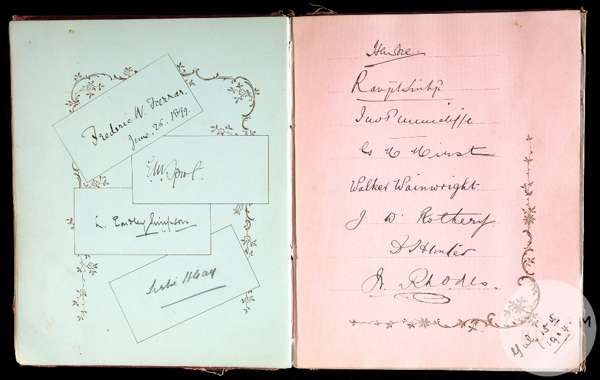 Frederic W. Farrar.
June. 26. 1899.
Simpson
Hawke
Ranjitsinhji
Jno Tunnicliffe
G H Hirst
Walker Wainwright
J W Rothery
D Hunter
W. Rhodes.
July 15
1904